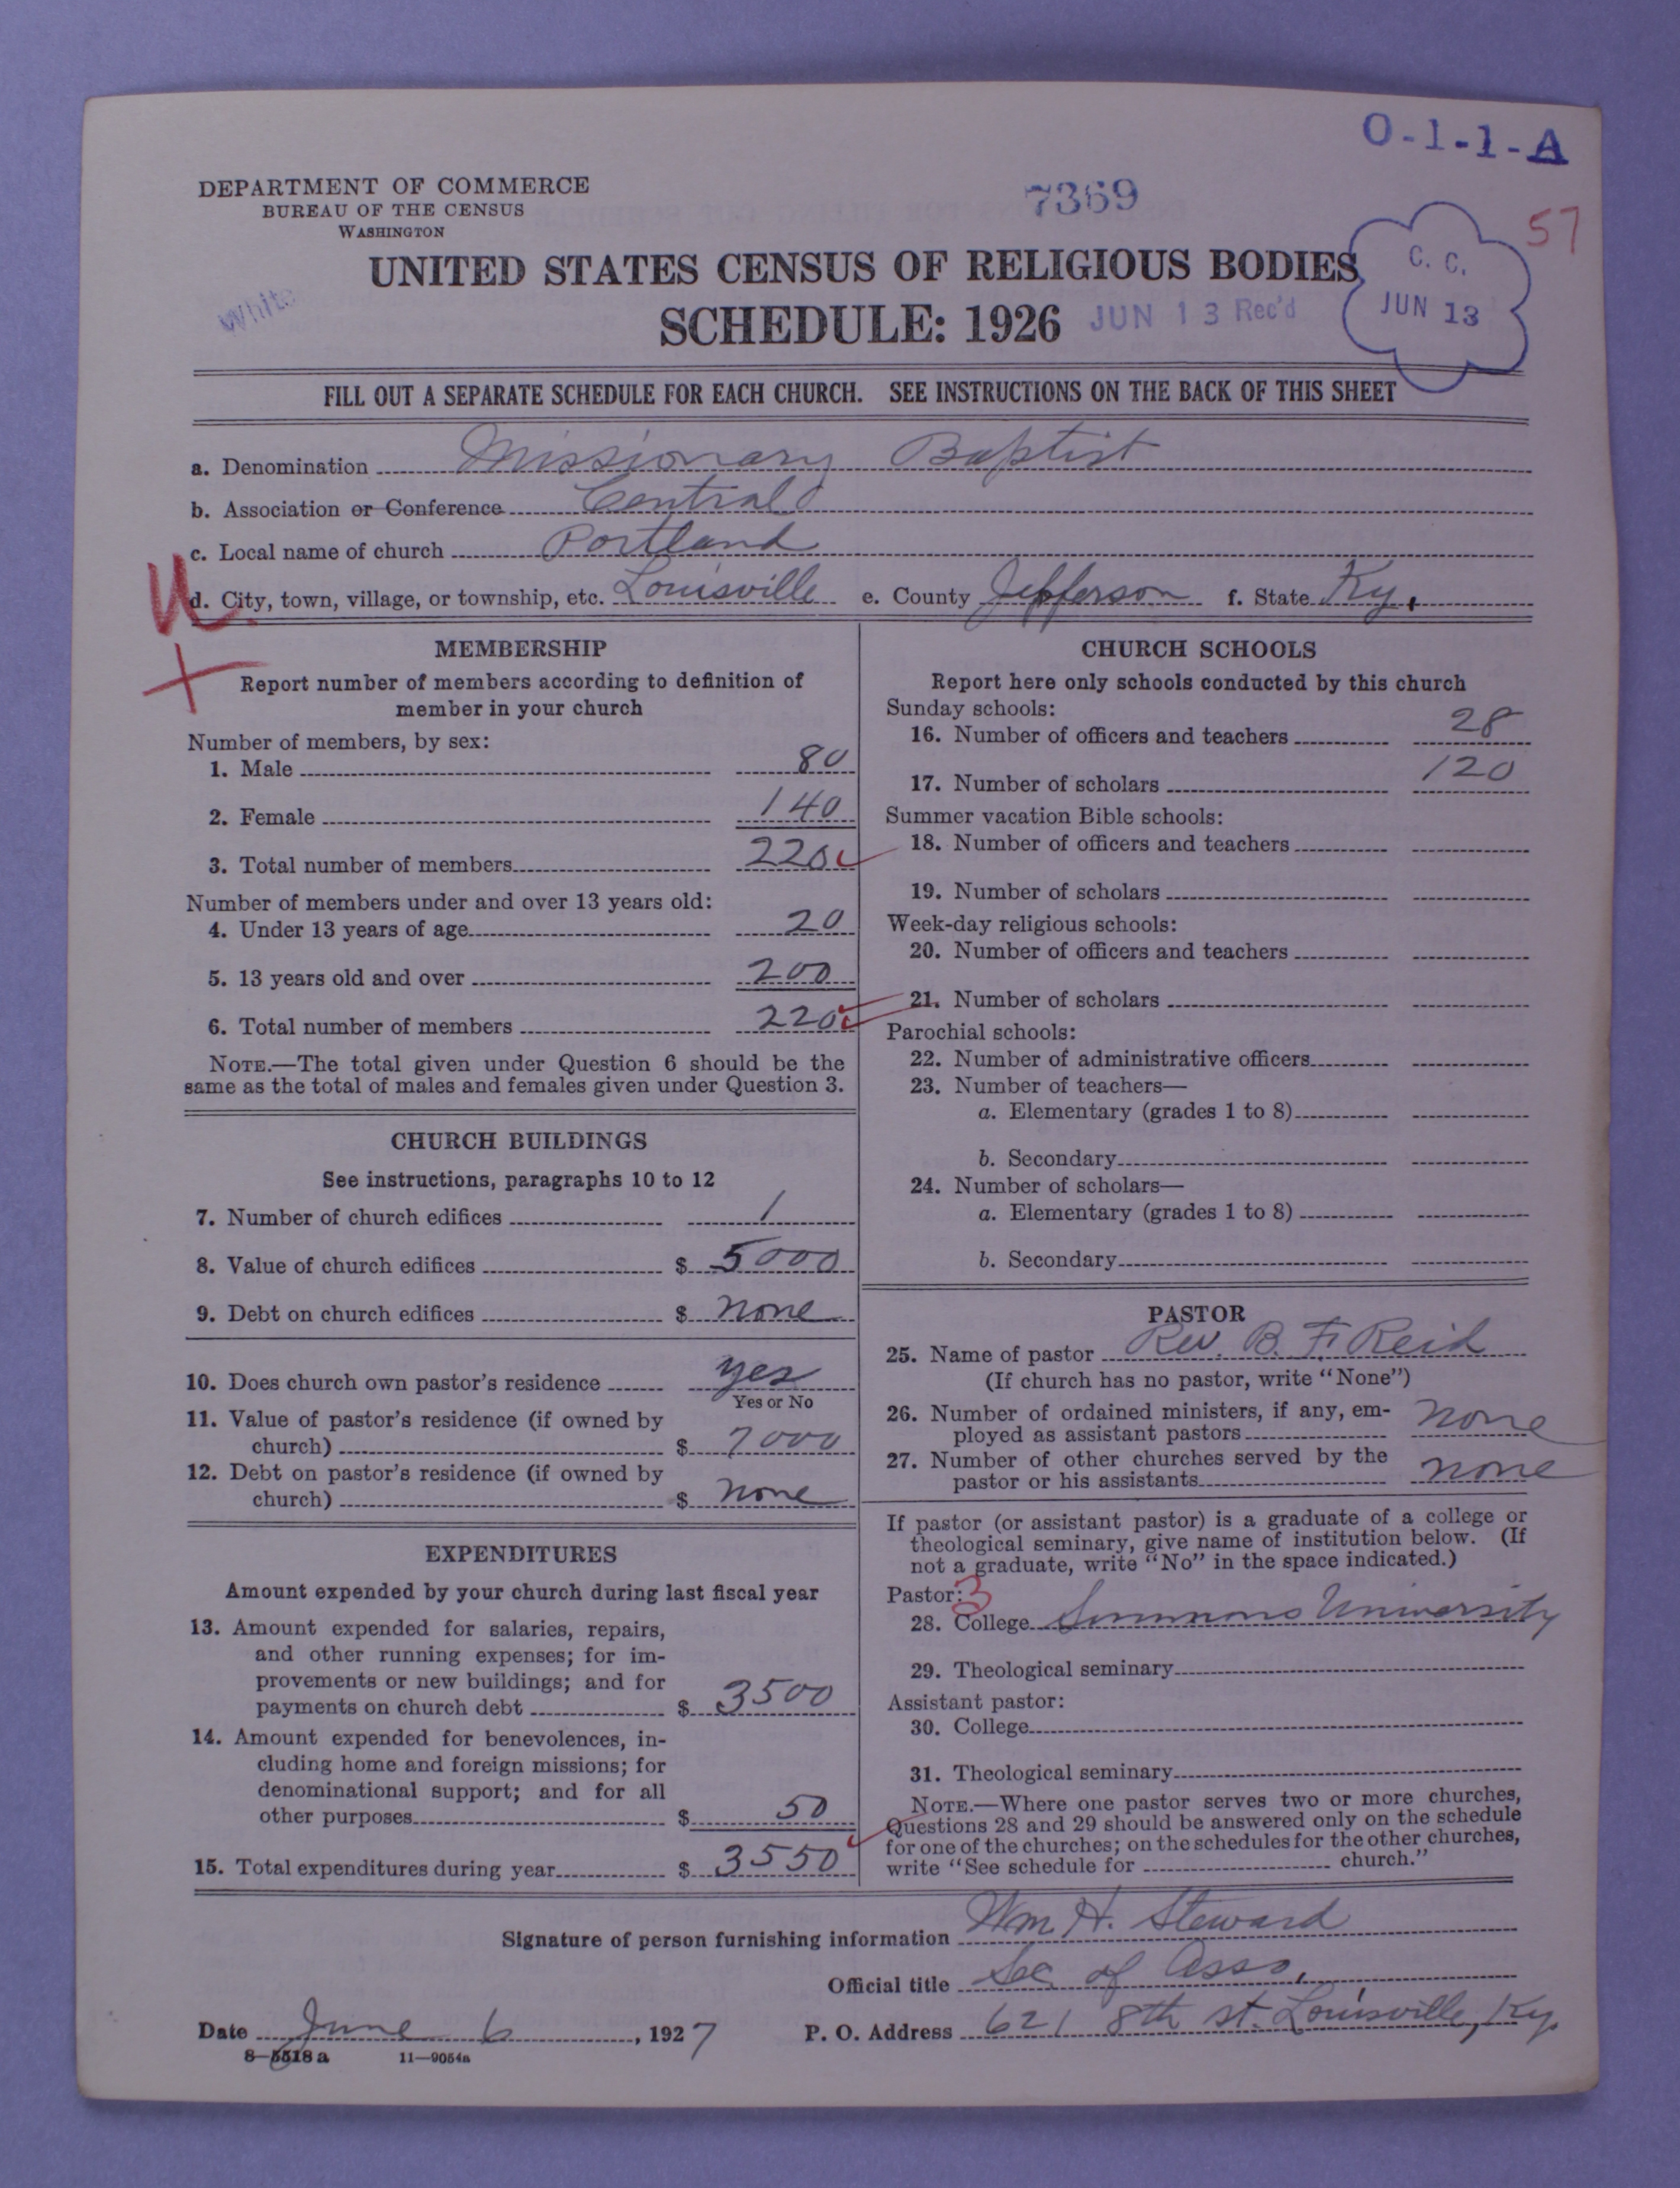 O-1-1-A
DEPARTMENT OF COMMERCE
BUREAU OF THE CENSUS
WASHINGTON
7369
57
UNITED STATES CENSUS OF RELIGIOUS BODIES
C. C.
JUN 13
White
SCHEDULE: 1926
JUN 13 Rec'd
FILL OUT A SEPARATE SCHEDULE FOR EACH CHURCH. SEE INSTRUCTIONS ON THE BACK OF THIS SHEET
a. Denomination Missionary Baptist
b. Association or Conference Central
c. Local name of church Portland
U.
d. City, town, village, or township, etc. Louisville e. County Jefferson f. State Ky.
MEMBERSHIP
Report number of members according to definition of
member in your church
Number of members, by sex:
1. Male 80
2. Female 140
3. Total number of members 220
Number of members under and over 13 years old:
4. Under 13 years of age 20
5. 13 years old and over 200
6. Total number of members 220
NOTE.—The total given under Question 6 should be the
same as the total of males and females given under Question 3.
CHURCH BUILDINGS
See instructions, paragraphs 10 to 12
7. Number of church edifices 1
8. Value of church edifices $ 5000
9. Debt on church edifices $ none
10. Does church own pastor's residence yes
Yes or No
11. Value of pastor's residence (if owned by
church) $ 7000
12. Debt on pastor's residence (if owned by
church) $ none
EXPENDITURES
Amount expended by your church during last fiscal year
13. Amount expended for salaries, repairs,
and other running expenses; for im-
provements or new buildings; and for
payments on church debt $ 3500
14. Amount expended for benevolences, in-
cluding home and foreign missions; for
denominational support; and for all
other purposes $ 50
15. Total expenditures during year $ 3550
CHURCH SCHOOLS
Report here only schools conducted by this church
Sunday schools:
16. Number of officers and teachers 28
17. Number of scholars 120
Summer vacation Bible schools:
18. Number of officers and teachers
19. Number of scholars
Week-day religious schools:
20. Number of officers and teachers
21. Number of scholars
Parochial schools:
22. Number of administrative officers
23. Number of teachers—
a. Elementary (grades 1 to 8)
b. Secondary
24. Number of scholars—
a. Elementary (grades 1 to 8)
b. Secondary
PASTOR
25. Name of pastor Rev. B. F. Reid
(If church has no pastor, write "None")
26. Number of ordained ministers, if any, em-
ployed as assistant pastors none
27. Number of other churches served by the
pastor or his assistants none
If pastor (or assistant pastor) is a graduate of a college or
theological seminary, give name of institution below. (If
not a graduate, write "No" in the space indicated.)
Pastor: 3
28. College Simmons University
29. Theological seminary
Assistant pastor:
30. College
31. Theological seminary
NOTE.—Where one pastor serves two or more churches,
Questions 28 and 29 should be answered only on the schedule
for one of the churches; on the schedules for the other churches,
write "See schedule for church."
Signature of person furnishing information Wm. H. Steward
Official title Sec of Asso.
Date June 6, 1927 P. O. Address 621 8th st. Louisville, Ky.
8—5518 a 11—9054a